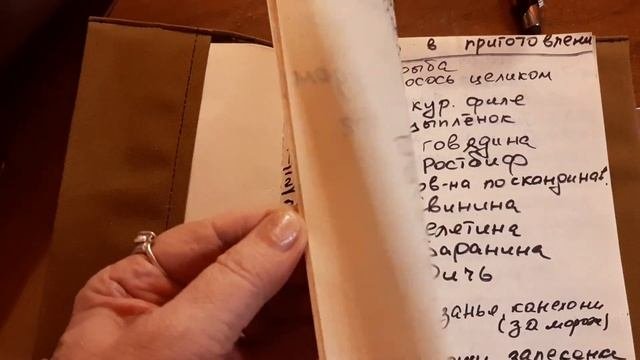 в приготовлени
рыба
осось целиком
кур. филе
цыплёнок
говядина
Ростбиф
ов-на по скандинав.
винина
елятина
баранина
дичь
занье, канелони
(за морож)
запекана